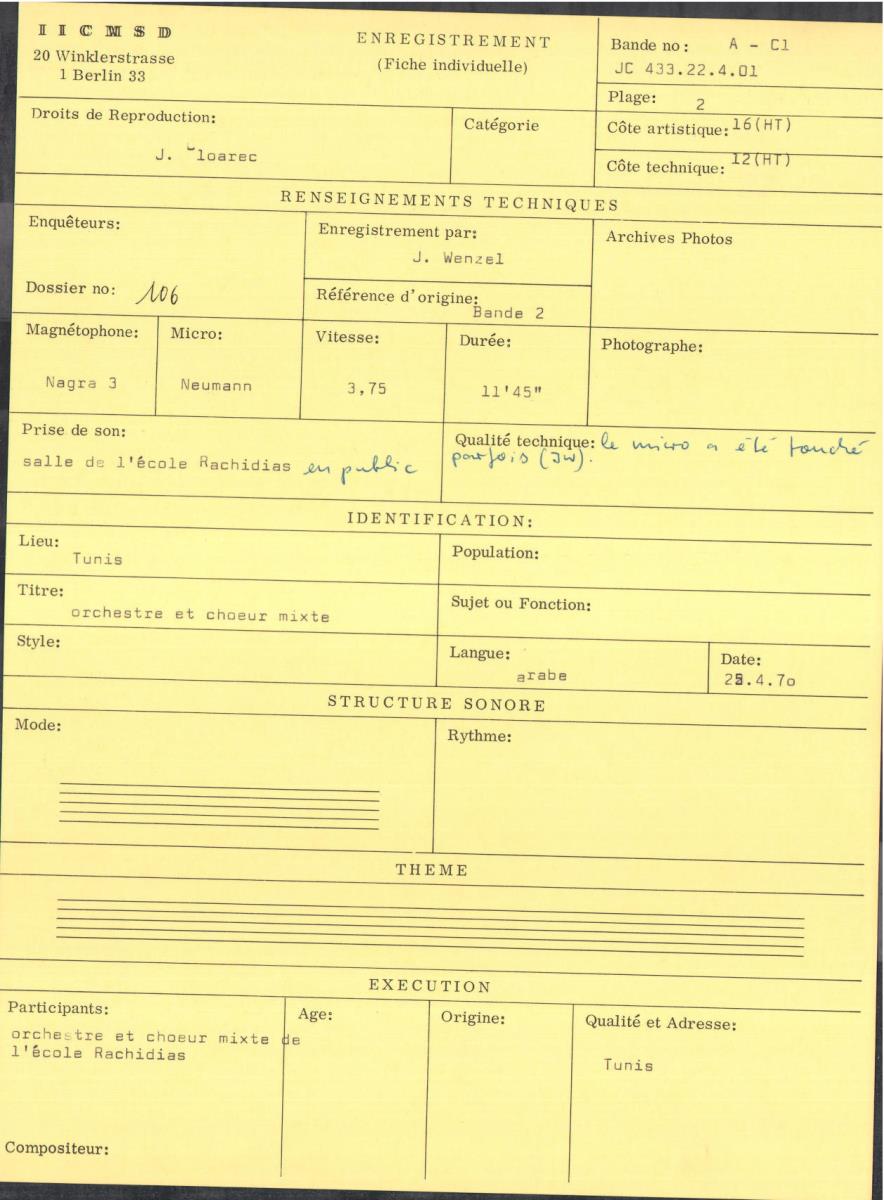 IICMSD
20 Winklerstrasse
1 Berlin 33
ENREGISTREMENT
(Fiche individuelle)
Bande no: A - Cl
JC 433.22.4.01
Plage: 2
Droits de Reproduction:
J. Cloarec
Catégorie
Côte artistique: 16(HT)
Côte technique: 12(HT)
RENSEIGNEMENTS TECHNIQUES
Enquêteurs:
Dossier no: 106
Enregistrement par:
J. Wenzel
Référence d'origine:
Bande 2
Archives Photos
Magnétophone:
Nagra 3
Micro:
Neumann
Vitesse:
3,75
Durée:
11'45"
Photographe:
Prise de son:
salle de l'école Rachidias en public
Qualité technique: le micro a été touché
parfois (JW).
IDENTIFICATION:
Lieu:
Tunis
Population:
Titre:
orchestre et choeur mixte
Sujet ou Fonction:
Style:
Langue:
arabe
Date:
.4.7o
STRUCTURE SONORE
Mode:
Rythme:
THEME
EXECUTION
Participants:
orchestre et choeur mixte de
l'école Rachidias
Age:
Origine:
Qualité et Adresse:
Tunis
Compositeur: